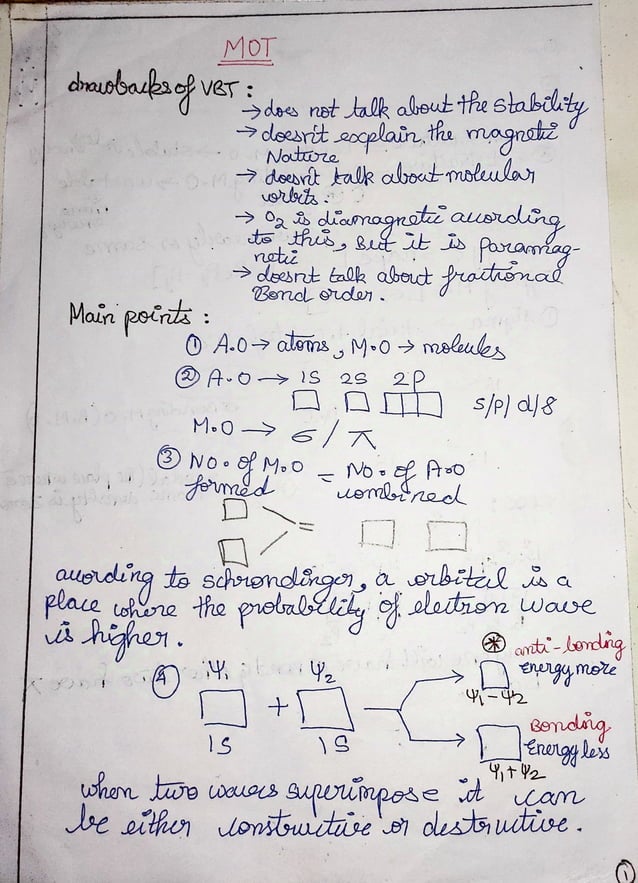 MOT
drawbacks of VBT :
→ does not talk about the stability
→ doesn't explain the magnetic
Nature
→ doesn't talk about molecular
orbits.
→ O2 is diamagnetic according
to this, But it is paramag-
netic
→ doesnt talk about fractional
Bond order.
Main points :
① A.O → atoms, M.O → molecules
② A.O → 1S 2S 2P s/p/d/f
M.O → σ / π
③ NO. of M.O formed = NO. of A.O combined
=
according to schrondinger, a orbital is a
place where the probability of electron wave
is higher.
④ ψ1 + ψ2
1S 1S
* anti-bonding
Energy more
ψ1 - ψ2
Bonding
Energy less
ψ1 + ψ2
when two waves superimpose it can
be either constructive or destructive.
①